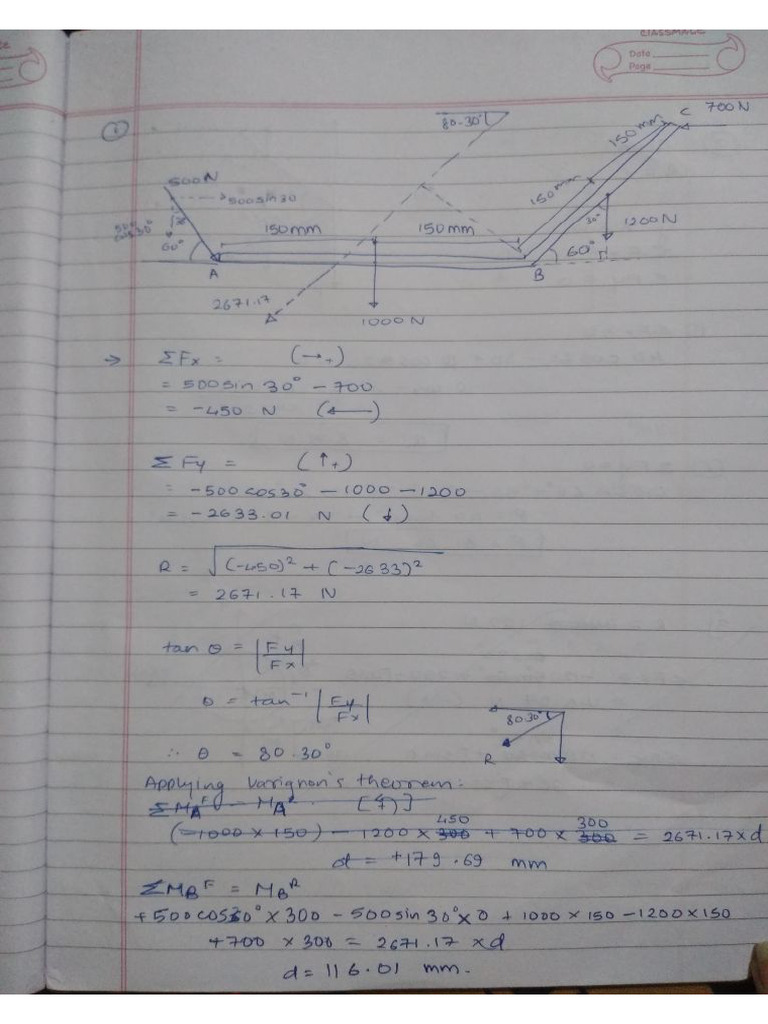 CLASSMATE
Date
Page
①
80.30°
C 700N
150 mm
500N
500 sin 30
150 mm
500 cos 30°
30
60°
150mm
150mm
30°
1200 N
60°
A
B
2671.17
1000 N
→ ΣFx = (→+)
= 500 sin 30° - 700
= -450 N (←)
ΣFy = (↑+)
= -500 cos 30° - 1000 - 1200
= -2633.01 N (↓)
R = √(-450)² + (-2633)²
= 2671.17 N
tan θ = |Fy/Fx|
θ = tan⁻¹ |Fy/Fx|
80.30°
∴ θ = 80.30°
R
Applying Varignon's theorem:
ΣMA^F = MA^R [↰]
450 300
(-1000 × 150) - 1200 × 300 + 700 × 300 = 2671.17 × d
d = +179.69 mm
ΣMB^F = MB^R
+500 cos 30° × 300 - 500 sin 30° × 0 + 1000 × 150 - 1200 × 150
+700 × 300 = 2671.17 × d
d = 116.01 mm.